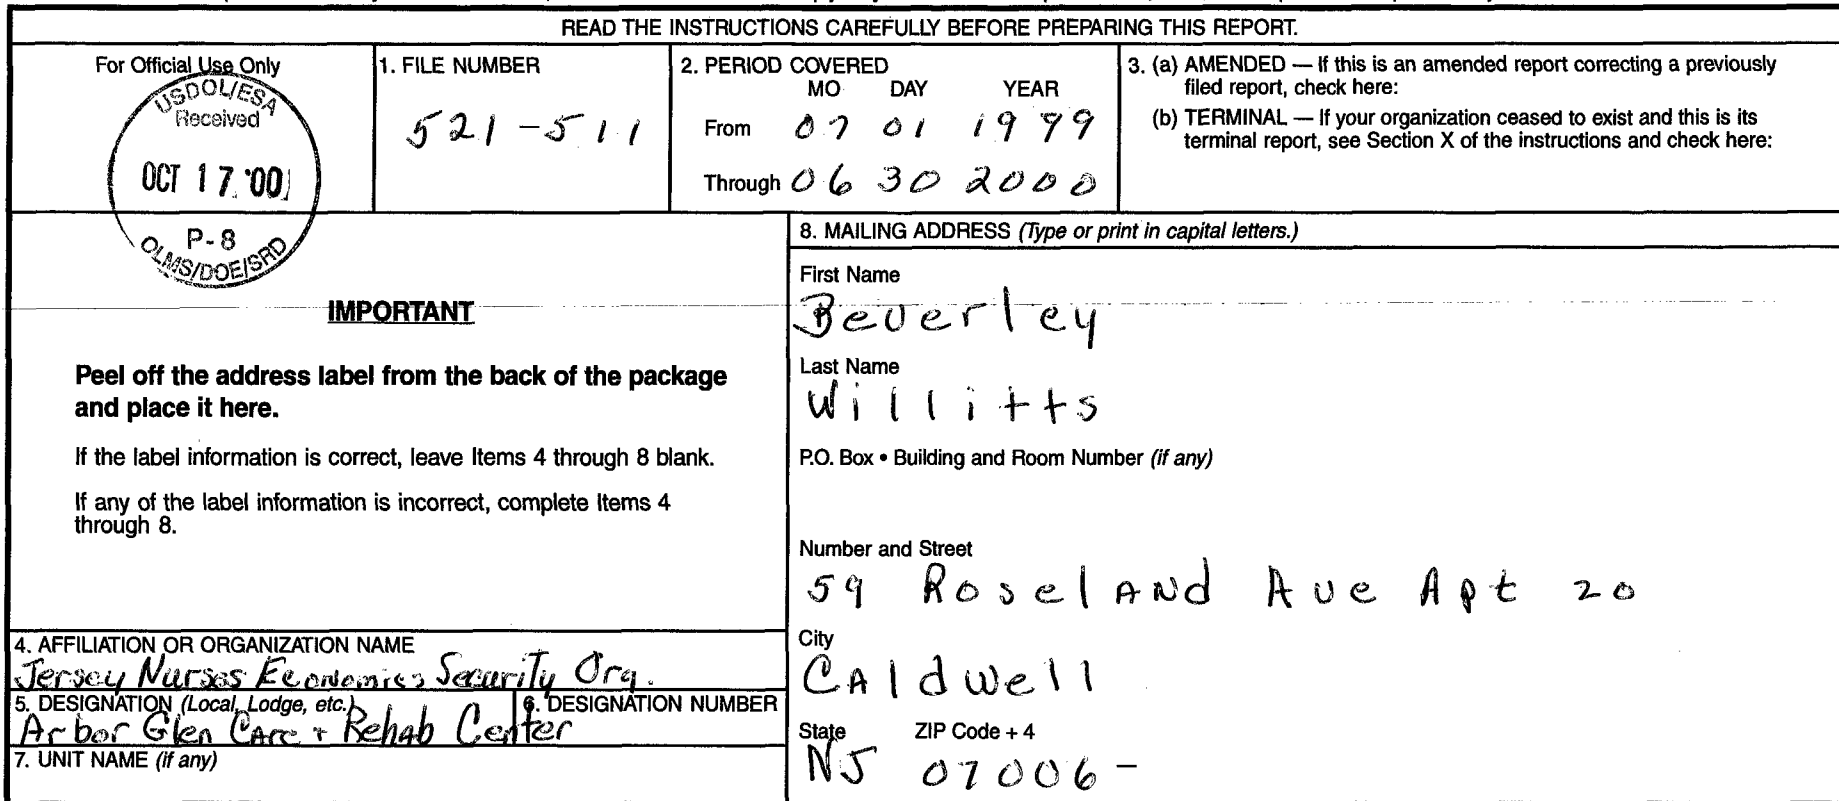 READ THE INSTRUCTIONS CAREFULLY BEFORE PREPARING THIS REPORT.
For Official Use Only
USDOL/ESA
Received
OCT 17 '00
P-8
OLMS/DOE/SRD
1. FILE NUMBER
521-511
2. PERIOD COVERED
MO DAY YEAR
From 07 01 1999
Through 06 30 2000
3. (a) AMENDED — If this is an amended report correcting a previously
filed report, check here:
(b) TERMINAL — If your organization ceased to exist and this is its
terminal report, see Section X of the instructions and check here:
IMPORTANT
Peel off the address label from the back of the package
and place it here.
If the label information is correct, leave Items 4 through 8 blank.
If any of the label information is incorrect, complete Items 4
through 8.
4. AFFILIATION OR ORGANIZATION NAME
Jersey Nurses Economics Security Org.
5. DESIGNATION (Local, Lodge, etc.) 6. DESIGNATION NUMBER
Arbor Glen Care + Rehab Center
7. UNIT NAME (if any)
8. MAILING ADDRESS (Type or print in capital letters.)
First Name
Beverley
Last Name
Willitts
P.O. Box • Building and Room Number (if any)
Number and Street
59 Roseland Ave Apt 20
City
Caldwell
State ZIP Code + 4
NJ 07006-